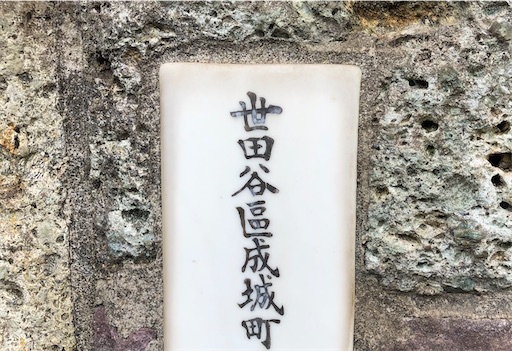 世田谷區成城町